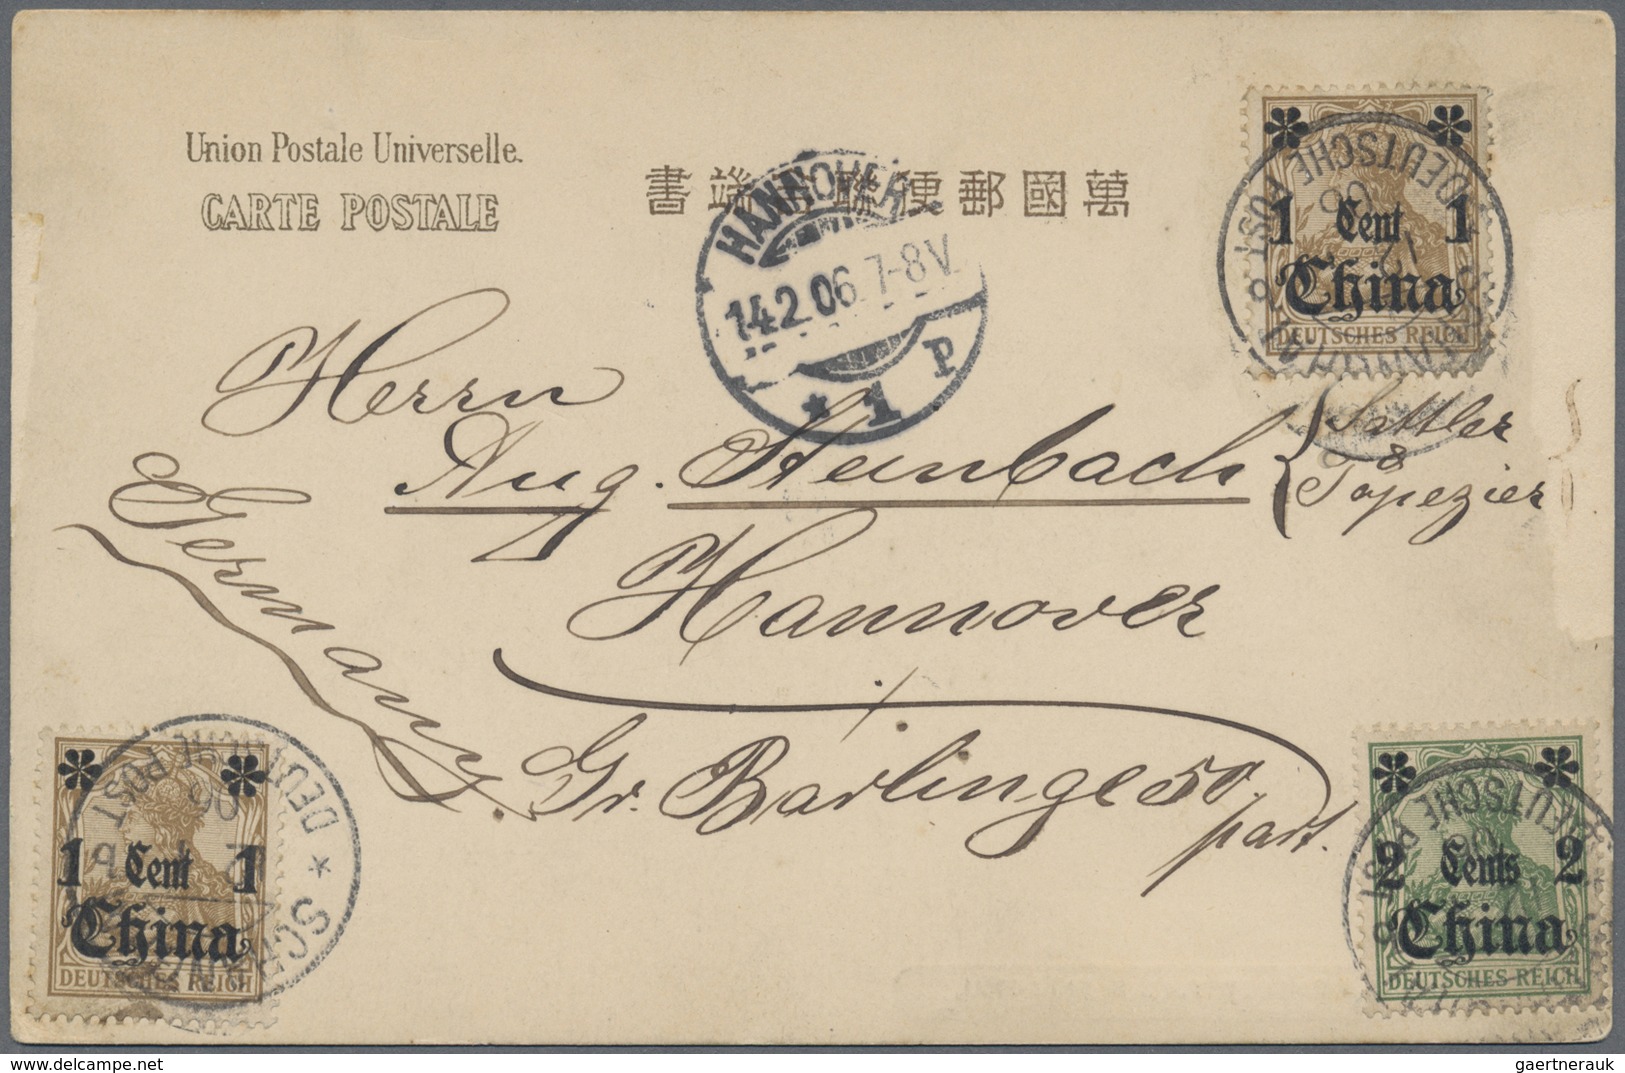 Union Postale Universelle.
CARTE POSTALE
萬國郵便聯 端書
HANNOVER
14.2.06.7-8V.
* 1 P
1 Cent 1
China
DEUTSCHES REICH
DEUTSCHE POST
Herrn
Aug. Steinbach
Sattler
&
Tapezier
Hannover
Germany
Gr. Barlinge 50.
part.
1 Cent 1
China
DEUTSCHES REICH
DEUTSCHE POST
2 Cents 2
China
DEUTSCHES REICH
gaertnerauk / delcampe.net